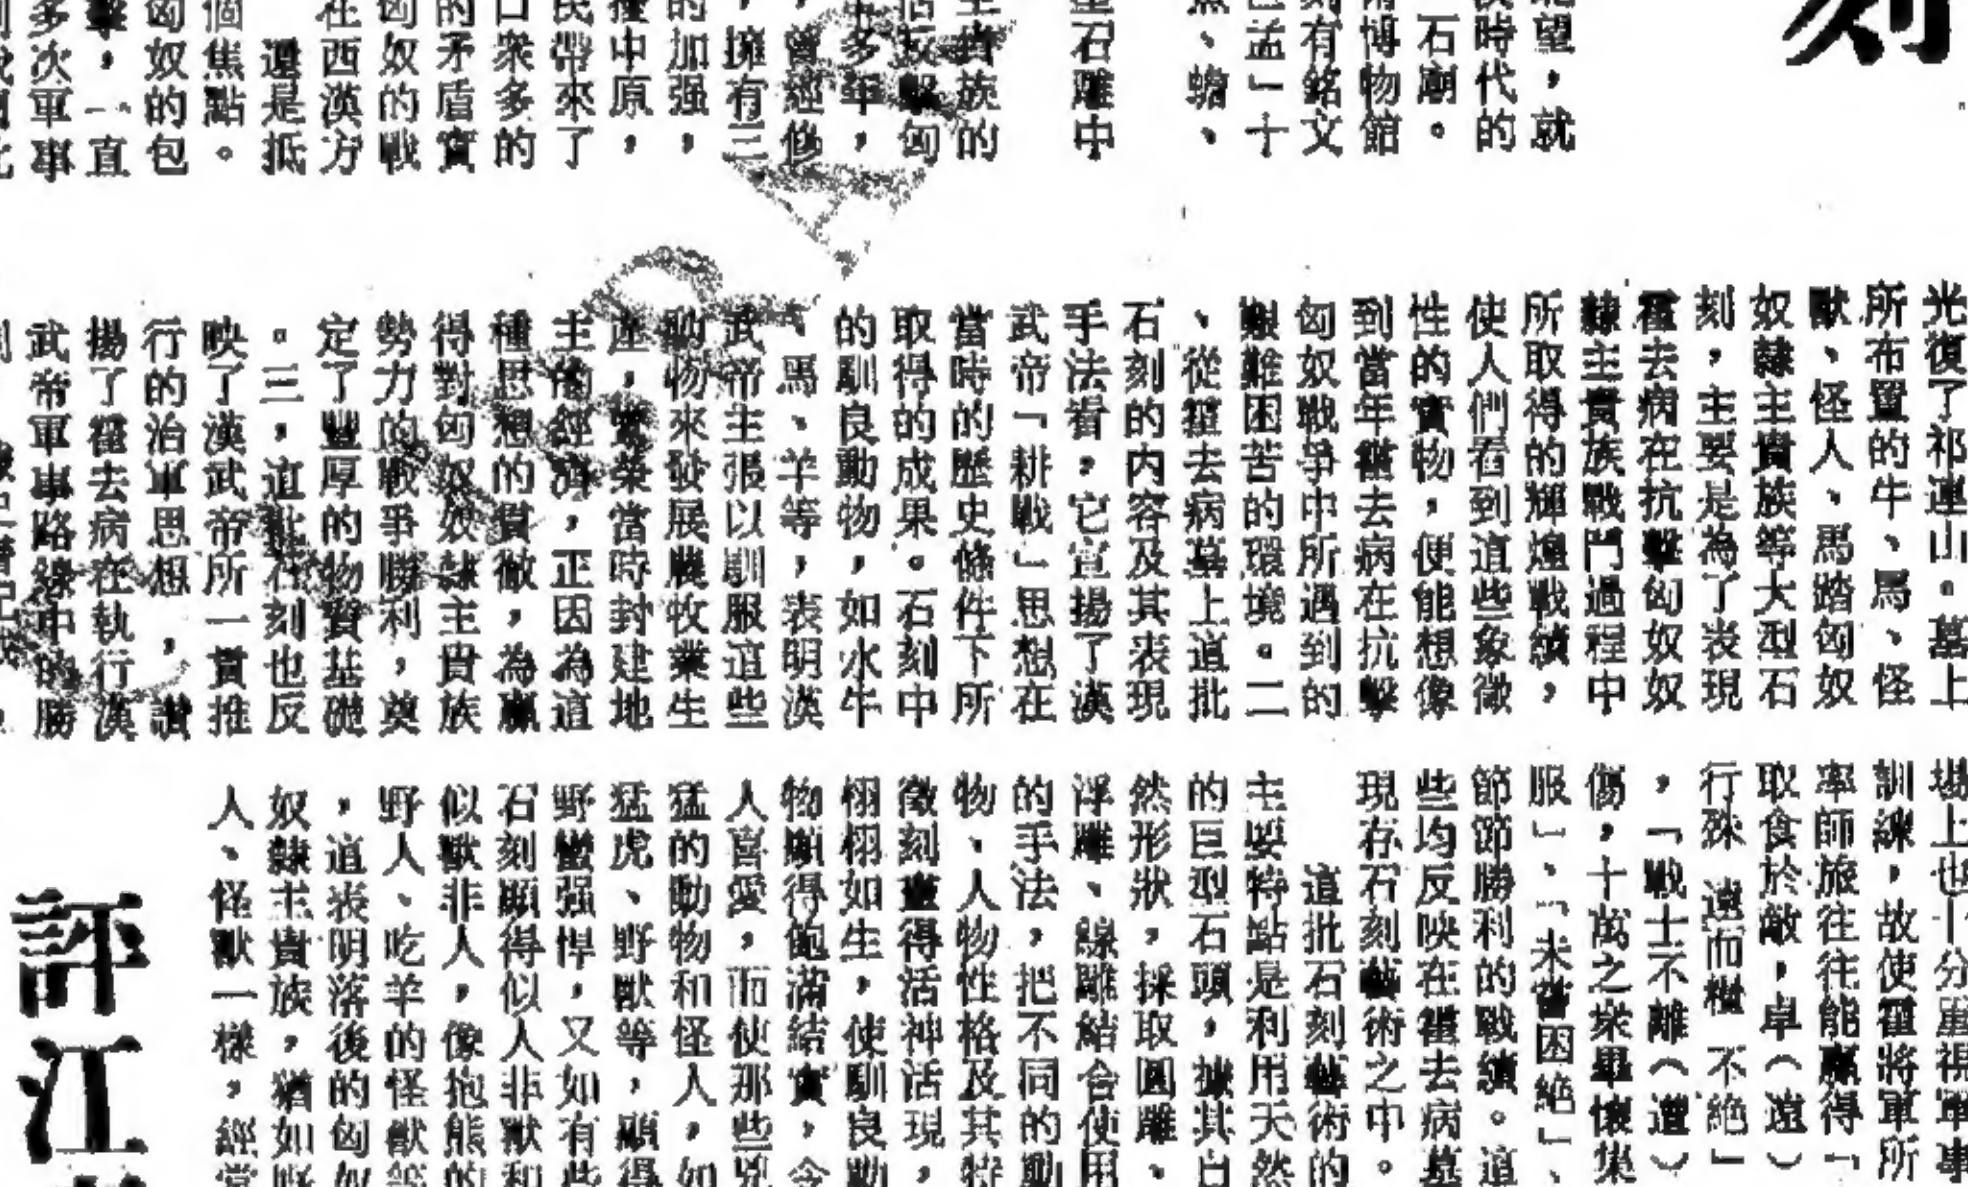 刻
望，就
時代的
石廟。
博物館
刻有銘文
孟」十
、蟾、
石雕中
主貴族的
反擊匈
多年，
曾經修
，擁有三
的加强，
中原，
民帶來了
口衆多的
的矛盾實
匈奴的戰
在西漢方
還是抵
個焦點。
匈奴的包
擊，一直
多次軍事
光復了祁連山。墓上
所布置的牛、馬、怪
獸、怪人、馬踏匈奴
奴隸主貴族等大型石
刻，主要是為了表現
霍去病在抗擊匈奴奴
隸主貴族戰鬥過程中
所取得的輝煌戰績，
使人們看到這些象徵
性的實物，便能想像
到當年霍去病在抗擊
匈奴戰爭中所遇到的
艱難困苦的環境。二
、從霍去病墓上這批
石刻的内容及其表現
手法看，它宣揚了漢
武帝「耕戰」思想在
當時的歷史條件下所
取得的成果。石刻中
的馴良動物，如水牛
、馬、羊等，表明漢
武帝主張以馴服這些
動物來發展農牧業生
產，繁榮當時封建地
主的經濟，正因為這
種思想的貫徹，為贏
得對匈奴奴隸主貴族
勢力的戰爭勝利，奠
定了豐厚的物質基礎
。三，這批石刻也反
映了漢武帝所一貫推
行的治軍思想，讚
揚了霍去病在執行漢
武帝軍事路線中的勝
場上也十分重視軍事
訓練，故使霍將軍所
率師旅往往能贏得「
取食於敵，卓（遠）
行殊遠而糧不絶」
，「戰士不離（遭）
傷，十萬之衆畢懷集
服」、「未嘗困絶」、
節節勝利的戰績。這
些均反映在霍去病墓
現存石刻藝術之中。
這批石刻藝術的
主要特點是利用天然
的巨型石頭，據其自
然形狀，採取圓雕、
浮雕、線雕結合使用
的手法，把不同的動
物、人物性格及其特
徵刻畫得活神活現，
栩栩如生，使馴良動
物顯得飽滿結實，令
人喜愛，而使那些兇
猛的動物和怪人，如
猛虎、野獸等，顯得
野蠻强悍，又如有些
石刻顯得似人非獸和
似獸非人，像抱熊的
野人、吃羊的怪獸等
，這表明落後的匈奴
奴隸主貴族，猶如野
人、怪獸一樣，經常
評江